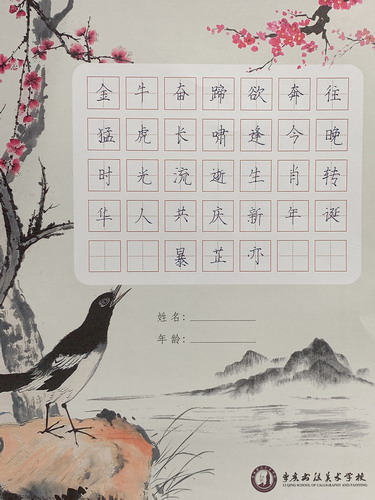 金牛奋蹄欲奔往
猛虎长啸逢今晚
时光流逝生肖转
华人共庆新年诞
暴芷亦
姓名:
年龄:
李庆书法美术学校
LI QING SCHOOL OF CALLIGRAPHY AND PAINTING